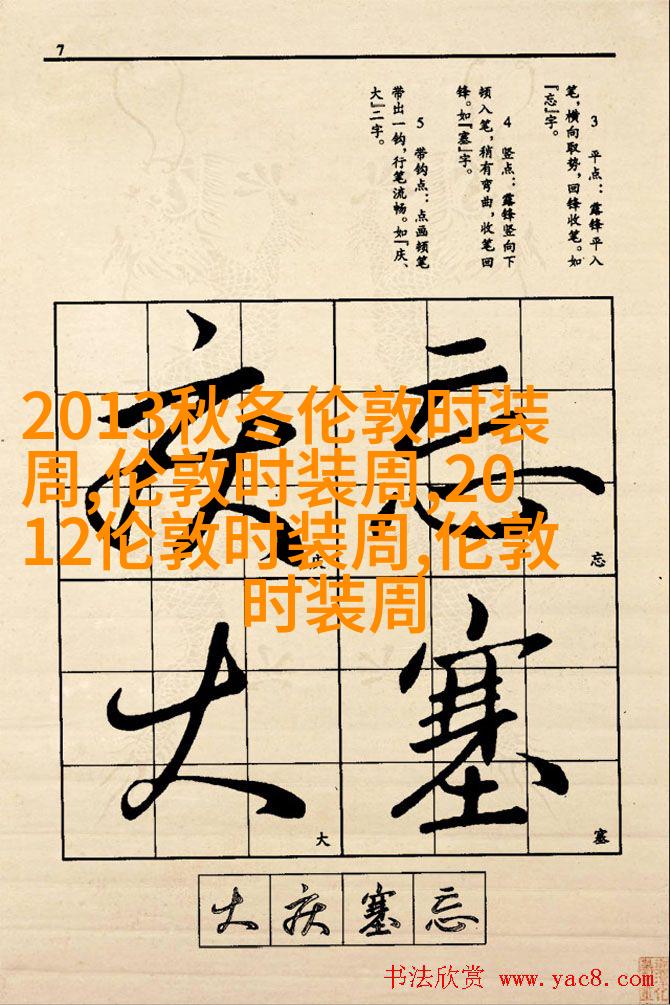 7
3 平点：露锋平入
笔，横向取势，回锋收笔。如
『忘』字。
4 竖点：露锋竖向下
顿入笔，稍有弯曲，收笔回
锋。如『塞』字。
5 带钩点：点画顿笔
带出一钩，行笔流畅。如『庆、
大』二字。
忘
塞
庆
大
2013秋冬伦敦时装
周,伦敦时装周,20
12伦敦时装周,伦敦
时装周
忘
塞
庆
大
大庆塞忘
书法欣赏 www.yac8.com